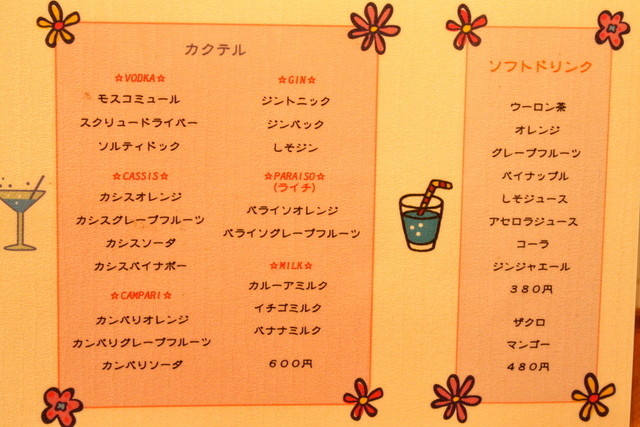 カクテル
☆VODKA☆
モスコミュール
スクリュードライバー
ソルティドック
☆CASSIS☆
カシスオレンジ
カシスグレープフルーツ
カシスソーダ
カシスパイナポー
☆CAMPARI☆
カンパリオレンジ
カンパリグレープフルーツ
カンパリソーダ
☆GIN☆
ジントニック
ジンバック
しそジン
☆PARAISO☆
(ライチ)
パライソオレンジ
パライソグレープフルーツ
☆MILK☆
カルーアミルク
イチゴミルク
バナナミルク
600円
ソフトドリンク
ウーロン茶
オレンジ
グレープフルーツ
パイナップル
しそジュース
アセロラジュース
コーラ
ジンジャエール
380円
ザクロ
マンゴー
480円